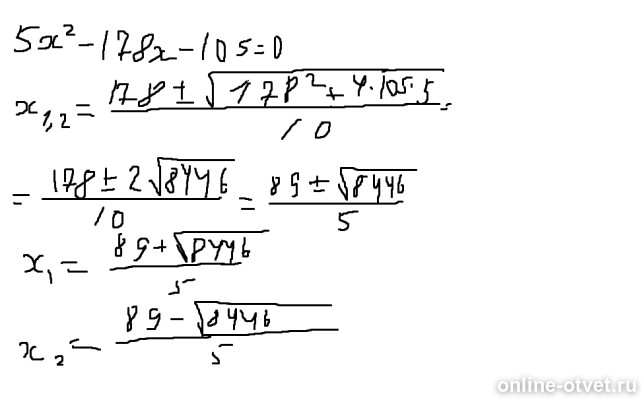 5x² - 178x - 105 = 0
x₁,₂ = (178 ± √(178² + 4·105·5)) / 10 =
= (178 ± 2√8446) / 10 = (89 ± √8446) / 5
x₁ = (89 + √8446) / 5
x₂ = (89 - √8446) / 5
online-otvet.ru